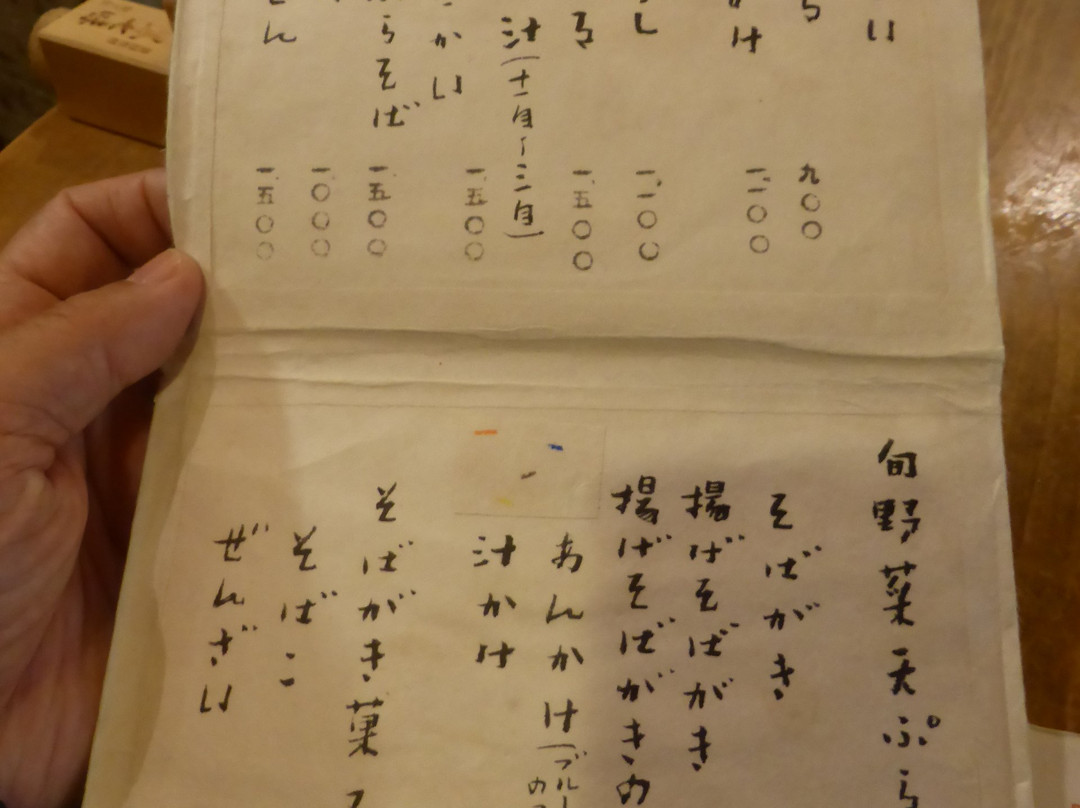 い
九〇〇
け 一、一〇〇
し 一、一〇〇
る 一、五〇〇
汁(十一月〜三月)
かい 一、五〇〇
らそば 一、五〇〇
一、〇〇〇
ん 一、五〇〇
旬野菜天ぷら
そばがき
揚げそばがき
揚げそばがきの
あんかけ(ブルー
の
汁かけ
そばがき菓
そばこ
ぜんざい